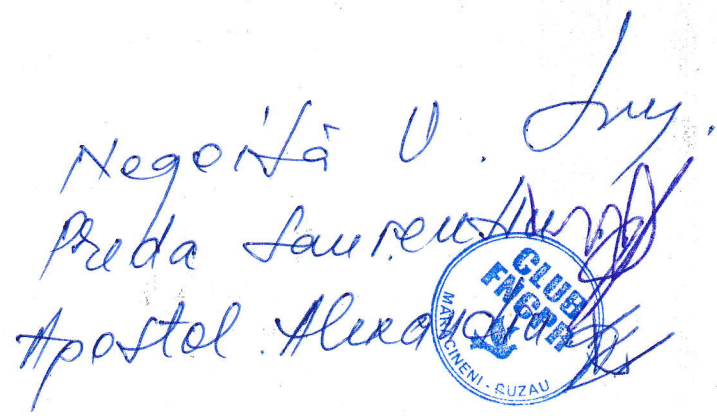 Negoiță V.
Preda Laurentiu
Apostol Alexandru
CLUB
FNGPR
MARACINENI - BUZAU